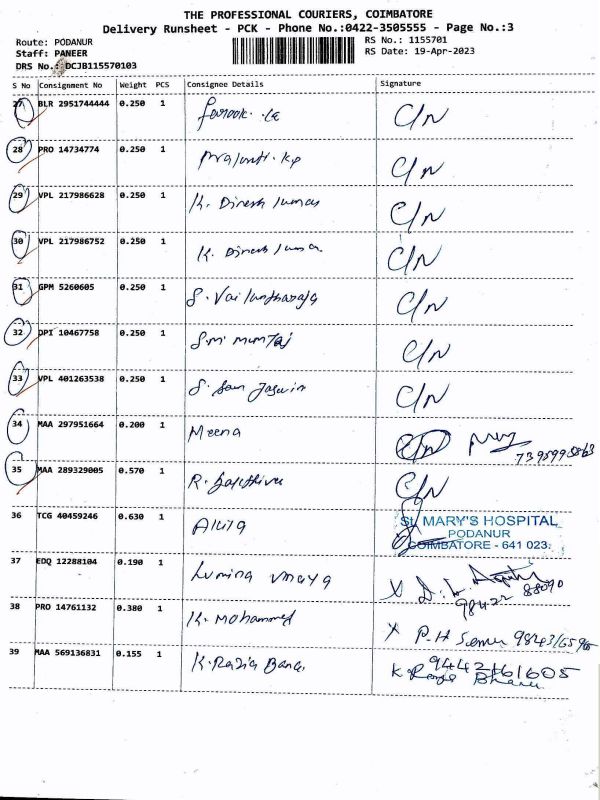 THE PROFESSIONAL COURIERS, COIMBATORE
Delivery Runsheet - PCK - Phone No.:0422-3505555 - Page No.:3
Route: PODANUR
RS No.: 1155701
Staff: PANEER
RS Date: 19-Apr-2023
DRS No.: DCJB115570103
S No Consignment No Weight PCS Consignee Details Signature
27 BLR 2951744444 0.250 1 C/N
28 PRO 14734774 0.250 1 C/N
29 VPL 217986628 0.250 1 K. Dinesh kumar C/N
30 VPL 217986752 0.250 1 K. Dinesh kumar C/N
31 GPM 5260605 0.250 1 C/N
32 DPI 10467758 0.250 1 C/N
33 VPL 401263538 0.250 1 C/N
34 MAA 297951664 0.200 1 Meena C/N
35 MAA 289329005 0.570 1 C/N
36 TCG 40459246 0.630 1 ST. MARY'S HOSPITAL
PODANUR
COIMBATORE - 641 023.
37 EDQ 12288104 0.190 1 X
98422 88090
38 PRO 14761132 0.380 1 K. Mohammed X P.H
39 MAA 569136831 0.155 1 K. Razia Banu 9442161605